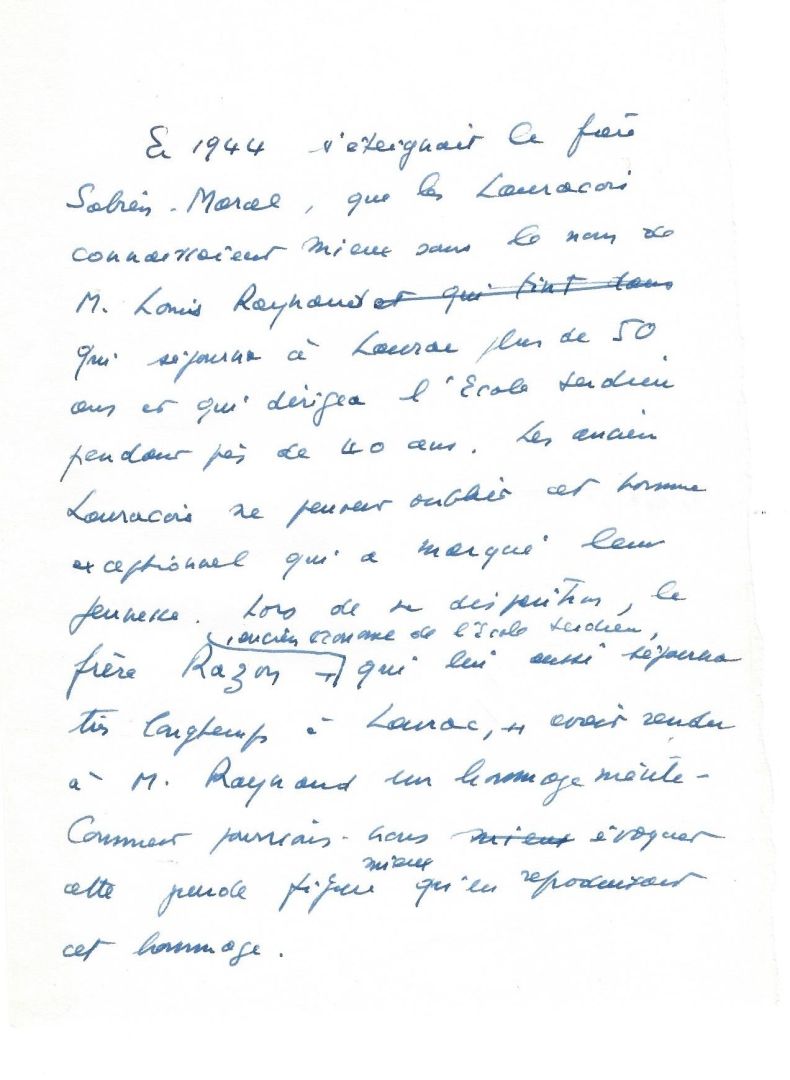 En 1944 s'éteignait le frère
Sabrin-Marcel, que les Lauracois
connaissaient mieux sous le nom de
M. Louis Raynaud et qui tint dans
qui séjourna à Laurac plus de 50
ans et qui dirigea l'Ecole
pendant près de 40 ans. Les anciens
Lauracois ne peuvent oublier cet homme
exceptionnel qui a marqué leur
jeunesse. Lors de sa disparition, le
, ancien econome de l'école
frère Razon qui lui aussi séjourna
très longtemps à Laurac, avait rendu
à M. Raynaud un hommage mérité-
Comment pourrions-nous mieux évoquer
mieux
cette grande figure qu'en reproduisant
cet hommage.